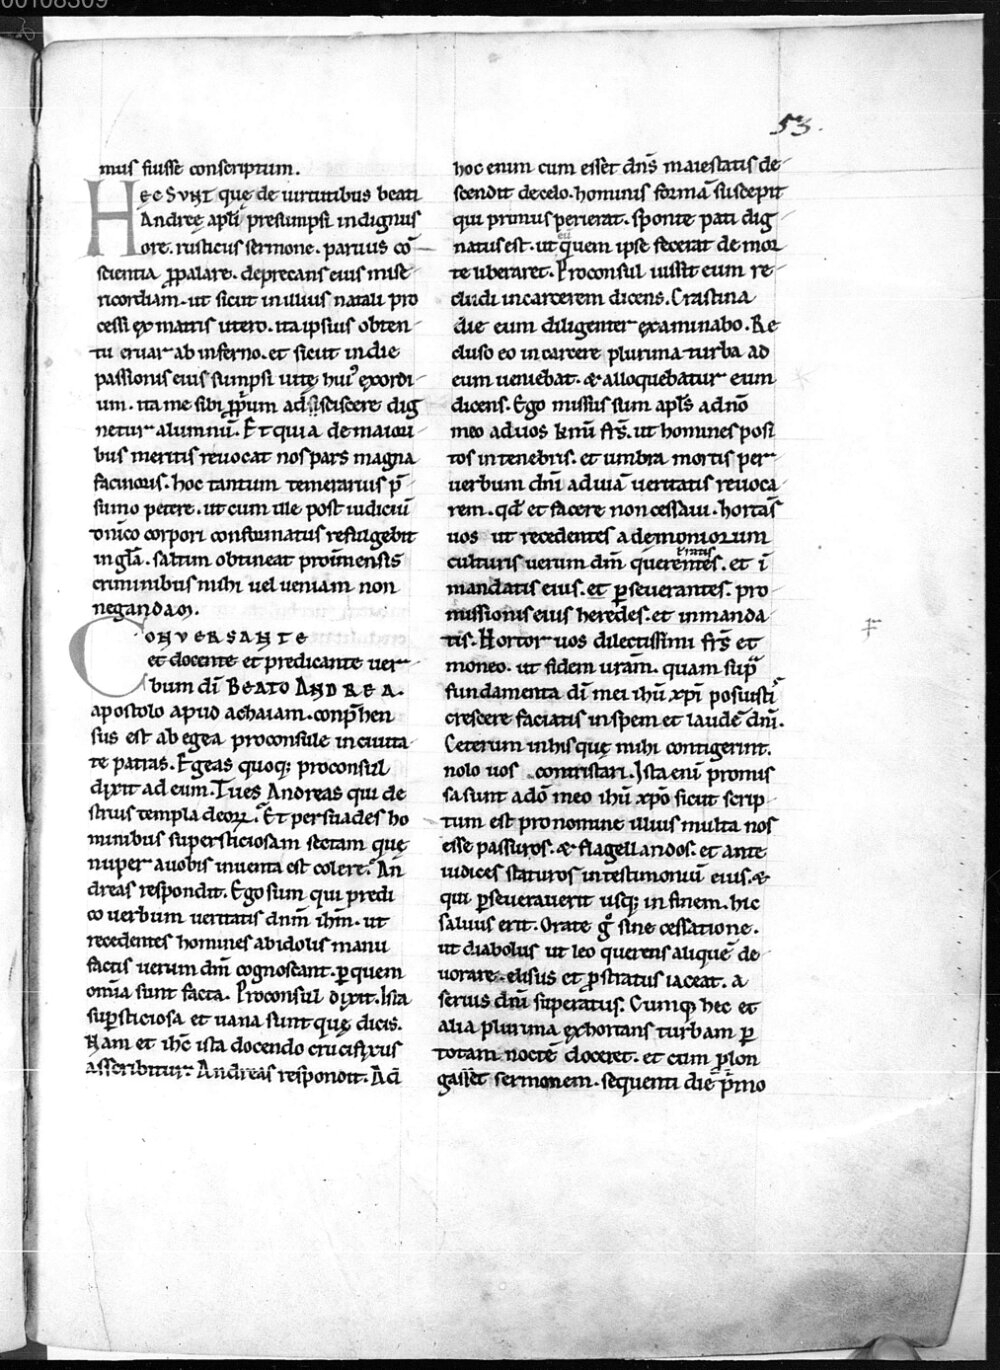 00108309
53.
mus fuisse conscriptum.
HEC SUNT quę de uirtutibus beati
Andreę apłi presumpsi indignus
ore. rusticus sermone. paruus cō
scientia ꝓpalare. deprecans eius mise
ricordiam. ut sicut in illius natali pro
cessi ex matris utero. ita ipsius obten
tu eruar ab inferno. et sicut in die
passionis eius sumpsi uitę huiꝰ exordi
um. ita me sibi ꝓprium adsciscere dig
netur alumnū. Et quia de maiori
bus meritis reuocat nos pars magna
facinoris. hoc tantum temerarius p̄
sumo petere. ut cum ille post iudiciū
dn̄ico corpori conformatus refulgebit
in gła. saltim obtineat pro īmensis
criminibus mihi uel ueniam non
negandam.
CONVERSANTE
et docente et predicante uer
bum dī BEATO ANDREA.
apostolo apud achaiam. conp̄hen
sus est ab egea proconsule in ciuita
te patras. Egeas quoq; proconsul
dixit ad eum. Tu es Andreas qui de
struis templa deoꝝ. Et persuades ho
minibus supersticiosam sectam quę
nuper a uobis inuenta est colere. An
dreas respondit. Ego sum qui predi
co uerbum ueritatis dn̄m ihm̄. ut
recedentes homines ab idolis manu
factis uerum dm̄ cognoscant. ꝑ quem
om̄ia sunt facta. Proconsul dixit. Ista
suꝑsticiosa et uana sunt quę dicis.
Nam et ihc̄ ista docendo crucifixus
asscribitur. Andreas respondit. Ad
hoc enim cum esset dn̄s maiestatis de
scendit de celo. hominis formā suscepit
qui primus perierat. sponte pati dig
natus est. ut eū quem ipse fecerat de mor
te liberaret. Proconsul iussit eum re
cludi in carcerem dicens. Crastina
die eum diligenter examinabo. Re
cluso eo in carcere plurima turba ad
eum ueniebat. & alloquebatur eum
dicens. Ego missus sum apłs a dn̄o
meo ad uos kmī frs̄. ut homines posi
tos in tenebris. et umbra mortis per
uerbum dn̄i ad uiā ueritatis reuoca
rem. qđ et facere non cessaui. hortās
uos ut recedentes a demoniorum
culturis uerum dm̄ querentes. et ī
mandatis eius. et ꝑseuerantes. pro
missionis eius heredes. et in manda
tis. Hortor uos dilectissimi frs̄ et
moneo. ut fidem uram̄. quam supra
fundamenta dī mei ihū xpī posuisti
crescere faciatis in spem et laudē dn̄i.
Ceterum in his quę mihi contigerint.
nolo uos contristari. Ista enī promis
sa sunt a dō meo ihū xpō sicut scrip
tum est pro nomine illius multa nos
esse passuros. & flagellandos. et ante
iudices staturos in testimoniū eius. &
qui ꝑseuerauerit usq; in finem. hic
saluus erit. Orate g̊ sine cessatione.
ut diabolus ut leo querens aliquē de
uorare. elisus et ꝓstratus iaceat. a
seruis dn̄i superatus. Cumq; hec et
alia plurima exhortans turbam ꝑ
totam noctē doceret. et cum ꝓlon
gasset sermonem. sequenti die primo